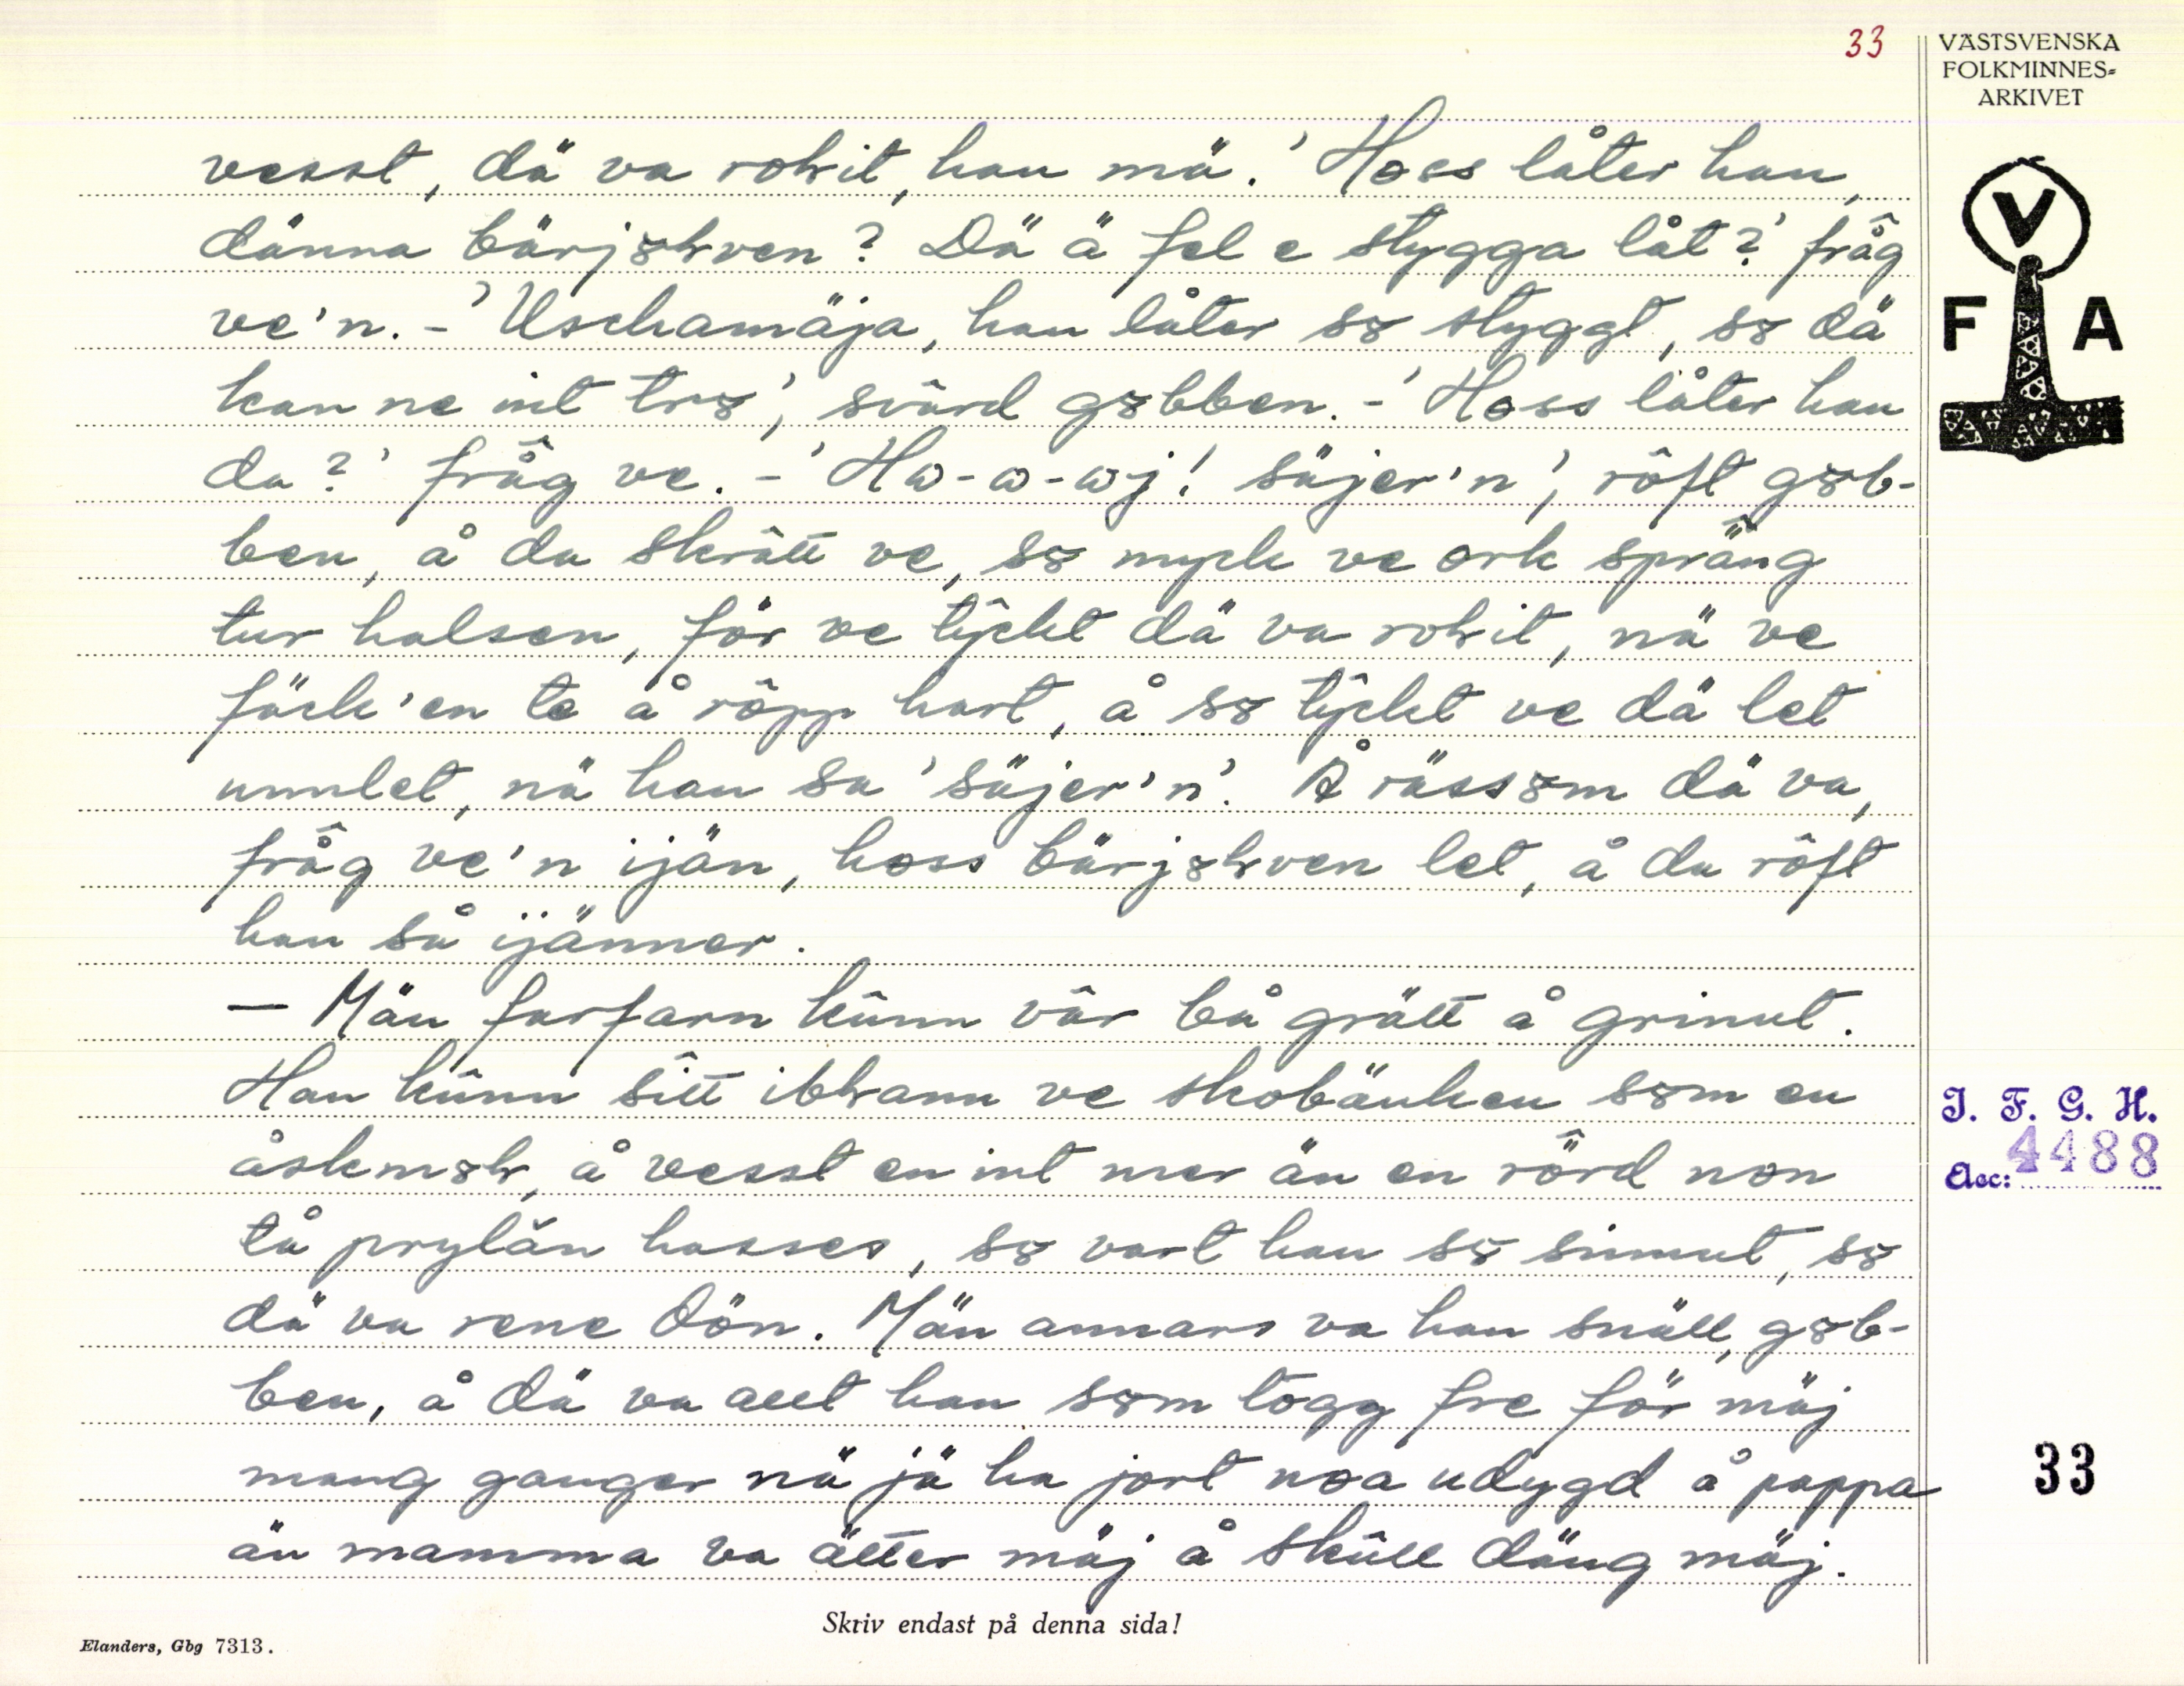 33
VÄSTSVENSKA
FOLKMINNES-
ARKIVET
V
F A
vesst, dä va rohit, han mä. 'Hoss låter han,
dänna bärjȣhven? Dä ä fel e stygga låt?' frâ̊g
ve'n. – 'Uschamäja, han låter sȣ styggt, sȣ dä
kan ne int trȣ', svârd gȣbben. – 'Hoss låter han
da?' frâ̊g ve. – 'Hω-ω-ωj! säjer'n', rôft gȣb-
ben, å da skrâtt ve, sȣ myck ve ork spräng
tur halsen, för ve tŷckt dä va rohit, nä ve
fäck'en te å rôpp hart, å sȣ tŷckt ve dä let
unnlet, nä han sa 'säjer'n'. Å rässȣm dä va,
frâ̊g ve'n ijän, hoss bärjȣhven let, å da rôft
han så ijänner.
— Män farfarn kûnn vâr bå grätt å grinut.
Han kûnn sîtt ibhann ve skobänken sȣm en
åskmȣh, å vesst en int mer än en rörd non
tå prylän hasses, sȣ vart han sȣ sinnut, sȣ
dä va rene dön. Män annars va han snäll, gȣb-
ben, å dä va allt han sȣm togg fre för mäj
mang ganger nä jä ha jort noa udygd å pappa
än mamma va ätter mäj å skûll däng mäj.
I. F. G. H.
Acc: 4488
33
Skriv endast på denna sida!
Elanders, Gbg 7313.